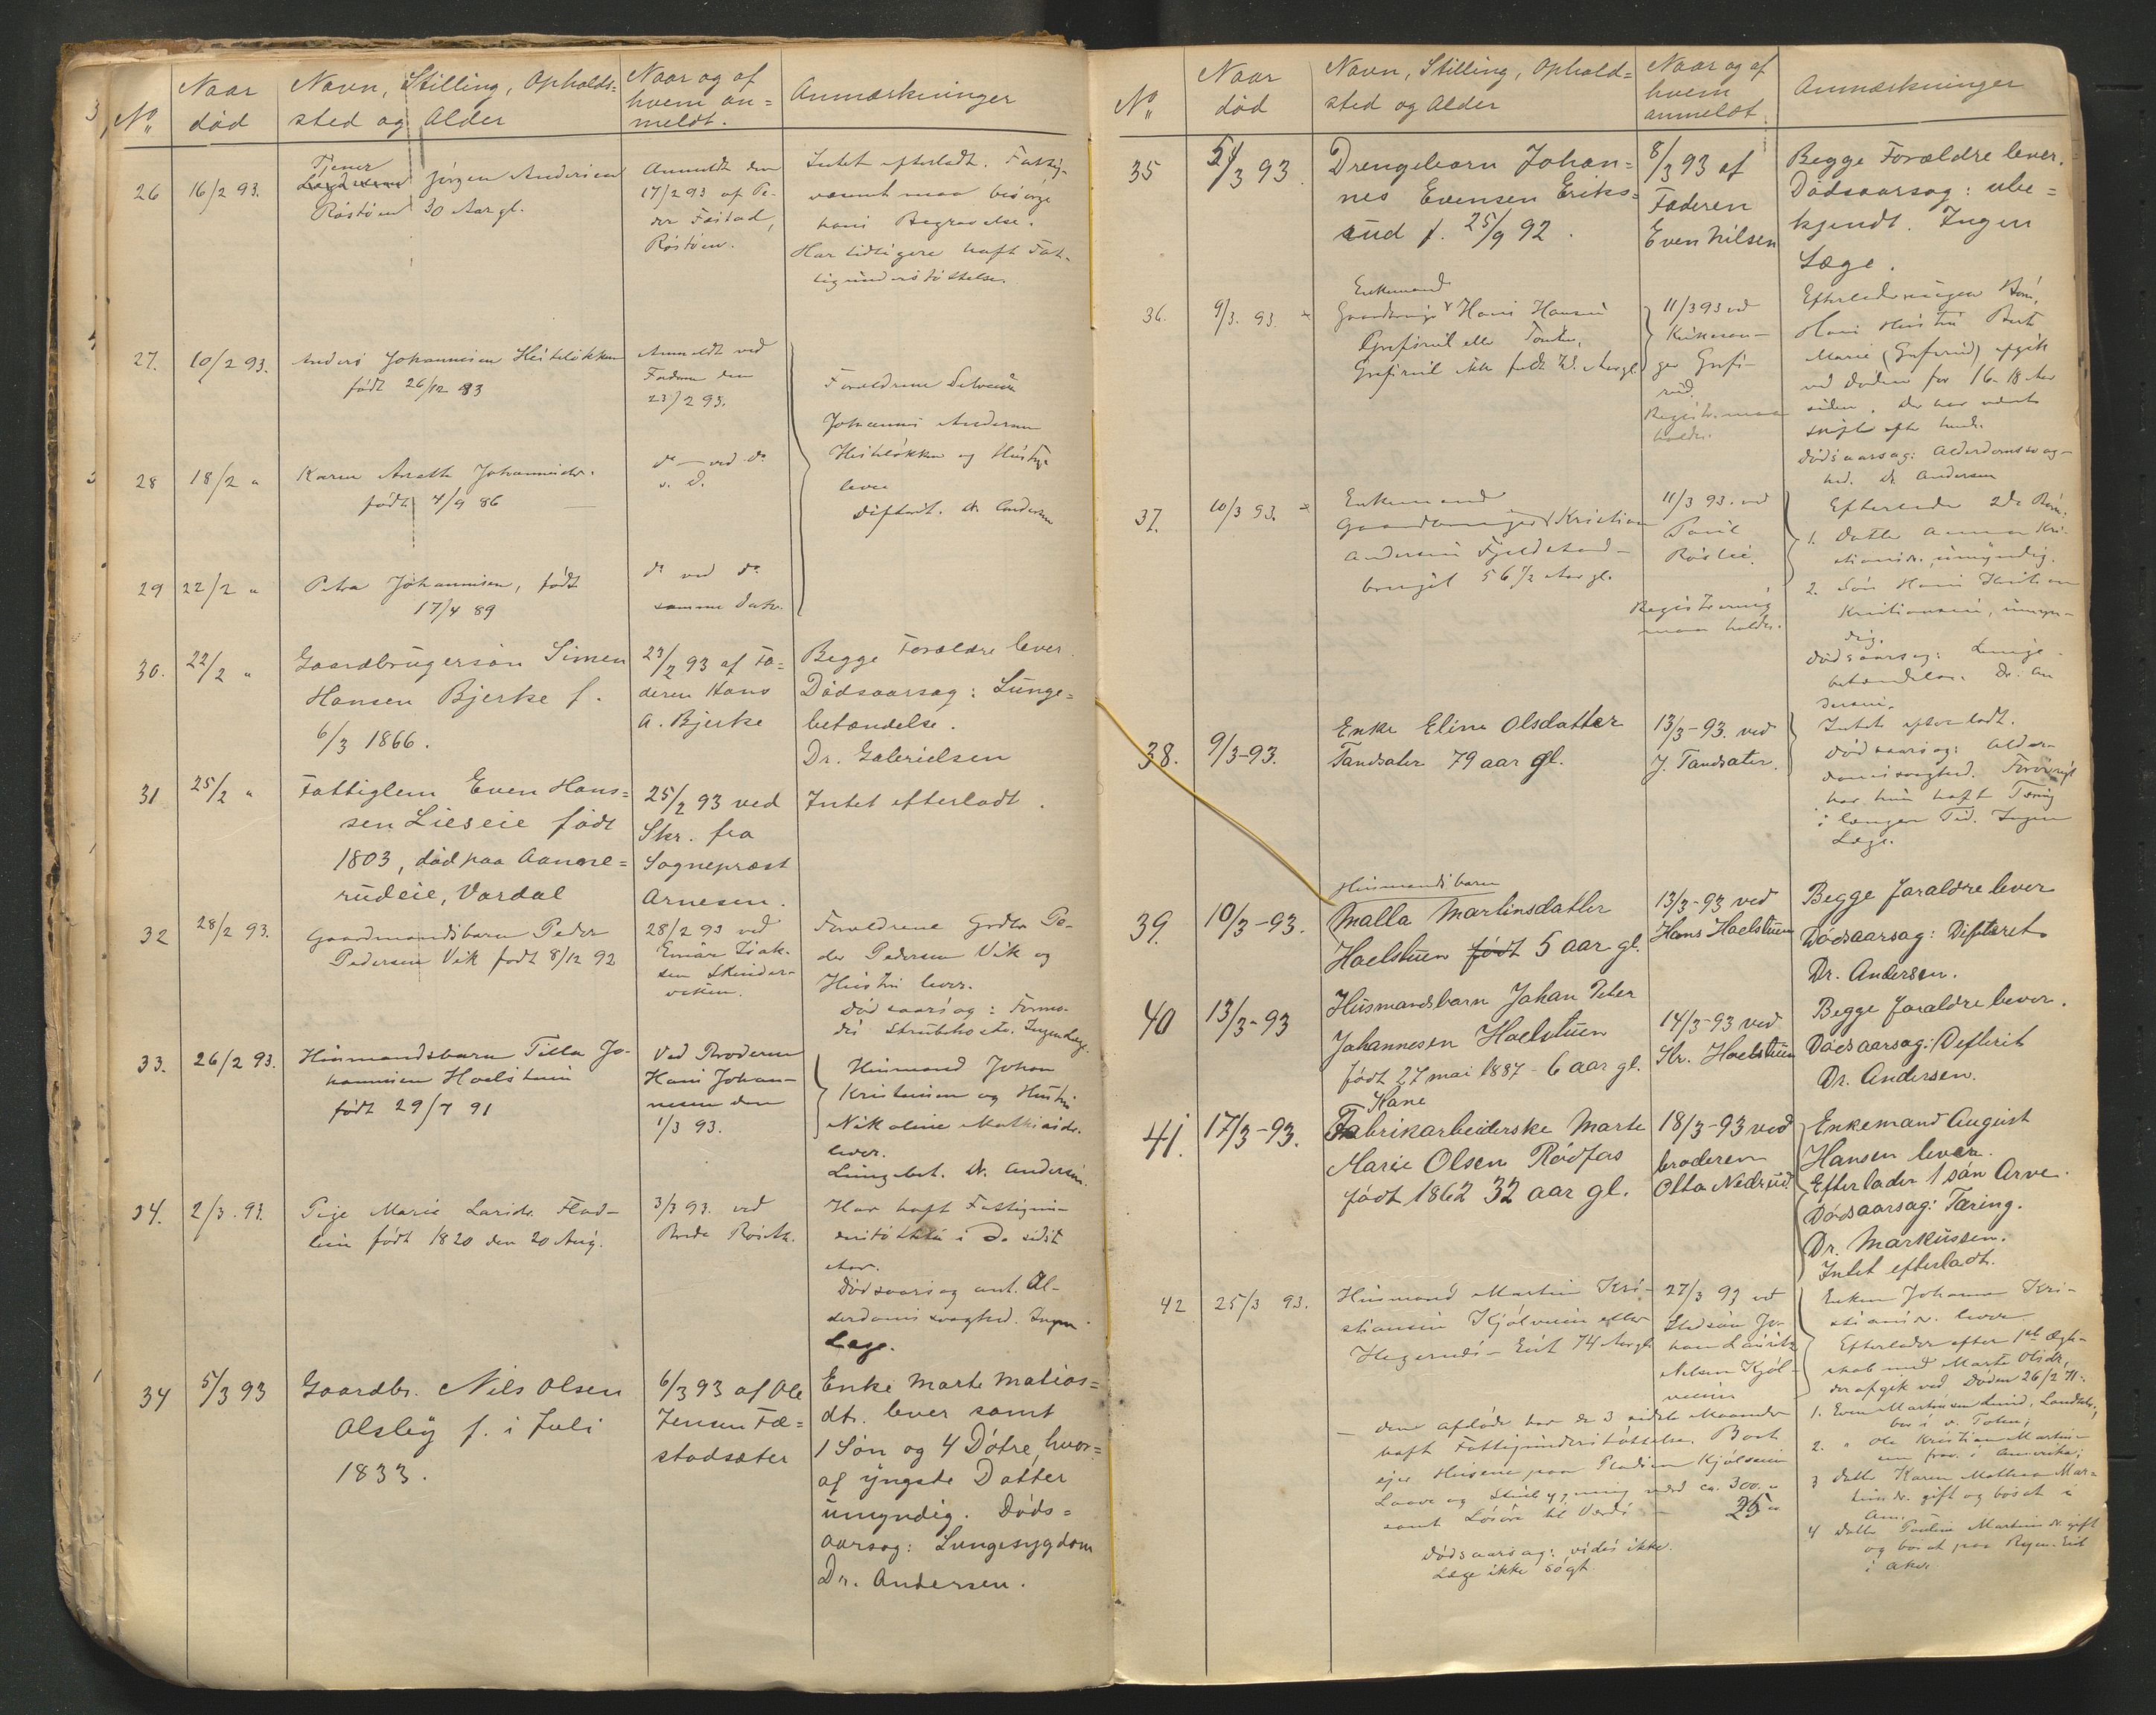 No
Naar
død
Navn, Stilling, Opholds=
sted og Alder
Naar og af
hvem an=
meldt.
Anmærkninger
26
16/2 93.
Tjener
Jørgen Andersen
Røstøen 30 Aar gl.
Anmeldt den
17/2 93 af Pe-
der Faistad,
Røstøen.
Intet efterladt. Fattig-
væsenet maa besørge
hans Begravelse.
Har tidligere haft Fat-
tigunderstøttelse.
27.
10/2 93.
Anders Johannesen Heiteløkken
født 26/12 83
Anmeldt ved
Faderen den
23/2 93.
Forældrene
Johannes Andersen
Heiteløkken og Hustru
lever
Difterit. Dr. Andersen
28
18/2 "
Karen Anette Johannesdr.
født 4/9 86
do — ved do
s. D.
29
22/2 "
Petra Johannesen, født
17/4 89
do ved do
samme Dato.
30.
22/2 "
Gaardbrugersøn Simen
Hansen Bjerke f.
6/3 1866.
23/2 93 af Fa=
deren Hans
A. Bjerke
Begge Forældre lever.
Dødsaarsag: Lunge=
betændelse.
Dr. Gabrielsen
31
25/2 "
Fattiglem Even Hans=
sen Lieseie født
1803, død paa Aame=
rudeie, Vardal
25/2 93 ved
Skr. fra
Sognepræst
Arnesen.
Intet efterladt.
32
28/2 93.
Gaardmandsbarn Peder
Pedersen Vik født 8/12 92
28/2 93 ved
Einar Isak-
sen Skinder-
viken.
Forældrene Grdbr. Pe-
der Pedersen Vik og
Hustru lever.
Dødsaarsag: Formo-
des Strubehoste. Ingen Læge.
33.
26/2 93.
Husmandsbarn Tilla Jo-
hannesen Hoelstuen
født 29/7 91
Ved Broderen
Hans Johan-
nesen den
1/3 93.
Husmand Johan
Kristensen og Hustru
Nikoline Mathiasdr.
lever.
Lungebet. Dr. Andersen.
34.
2/3. 93.
Pige Marie Larsdr. Flad-
lien født 1820 den 20 Aug.
3/3 93. ved
Røsth.
Har haft Fattigun-
derstøttelse i de sidste
Aar.
Dødsaarsag ant. Al-
derdomssvaghed. Ingen
Læge.
34
5/3 93
Gaardbr. Nils Olsen
Olsby f. i Juli
1833.
6/3 93 af Ole
Jensen Fæ=
stadsæter
Enke Marte Matias=
dtr. lever samt
1 Søn og 4 Døtre, hvor=
af yngste Datter
umyndig. Døds=
aarsag: Lungesygdom
Dr. Andersen.
No
Naar
død
Navn, Stilling, Ophold=
sted og Alder
Naar og af
hvem
anmeldt
Anmærkninger
35
5/3 93.
Drengebarn Johan=
nes Evensen Eriks=
rud f. 25/9 92.
8/3 93 af
Faderen
Even Nilsen
Begge Forældre lever.
Dødsaarsag: ube=
kjendt. Ingen
Læge.
36.
9/3. 93.
Enkemand
Gaardbruger Hans Hansen
Grefsrud eller
Grefsrud Aar gl.
11/3 93 ved
Grefs-
rud.
Registr. maa
holdes.
Efterlader ingen Børn.
Hans Hustru Berte
Marie (Grefsrud) afgik
ved Døden for 16-18 Aar
siden. Der har været
skifte efter hende.
Dødsaarsag: Alderdomssvag-
hed. Dr. Andersen
37.
10/3 93.
Enkemand
Gaardbruger Kristian
Andersen Fjeldstad-
brugit 56 1/2 Aar gl.
11/3 93. ved
Røslie.
Registrering
maa holdes.
Efterlader 2de Børn:
1. Datter Anna Kri-
stiansdr., umyndig.
2. Søn Hans Kristian
Kristiansen, umyn-
dig.
Dødsaarsag: Lunge-
betændelse. Dr. An
dersen.
38.
9/3-93.
Enke Eline Olsdatter
Tandsæter 79 aar gl.
13/3-93. ved
J. Tandsæter.
Intet efterladt.
Dødsaarsag: Alder-
domssvaghed. Forøvrigt
har hun haft Tæring
i længere Tid. Ingen
Læge.
39.
10/3-93.
Husmandsbarn
Malla Martinsdatter
Hoelstuen født 5 aar gl.
13/3-93 ved
Hans Hoelstuen
Begge foraldre lever
Dødsaarsag: Difteret.
Dr. Andersen.
40
13/3-93
Husmandsbarn Johan Peter
Johannesen Hoelstuen
født 27 mai 1887 - 6 aar gl.
14/3-93 ved
Kr. Hoelstuen
Begge foraldre lever.
Dødsaarsag: Defterit
Dr. Andersen.
41.
17/3-93.
Kone
Fabrikarbeiderske Marte
Marie Olsen Rødfos
født 1862 32 aar gl.
18/3-93 ved
broderen
Otto Nedrud.
Enkemand August
Hansen lever.
Efterlader 1 søn Arve.
Dødsaarsag: Tæring.
Dr. Markussen.
Intet efterladt.
42
25/3 93.
Husmand Martin Kri-
stiansen Kjølveien eller
Hagerud- Eiet 74 Aar gl.
27/3 93 ved
Stedsøn Jo-
han Lauritz
Nilsen Kjøl-
veien
Enken Johanne Kri-
stiansdr. lever
Efterlader efter 1ste Ægte-
skab med Marte Olsdr,
der afgik ved Døden 26/2 71:
1. Even Martinsen Lund, Landhdr.,
bor i v. Toten,
2. " Ole Kristian Martin-
sen frav. i Amerika;
3 Datter Karen Mathea Mar=
tinsdr. gift og bosat i
Am.
4 Datter Pauline Martinsdr. gift
og bosat paa Eiet
i
— den afdøde har de 3 sidste Maaneder
haft Fattigunderstøttelse. Boet
ejer Husene paa Pladsen Kjølveien
Laave og Stuebygning værd ca. 300. "
samt Løsøre til Værdi — 25 "
Dødsaarsag: vides ikke.
Læge ikke søgt.